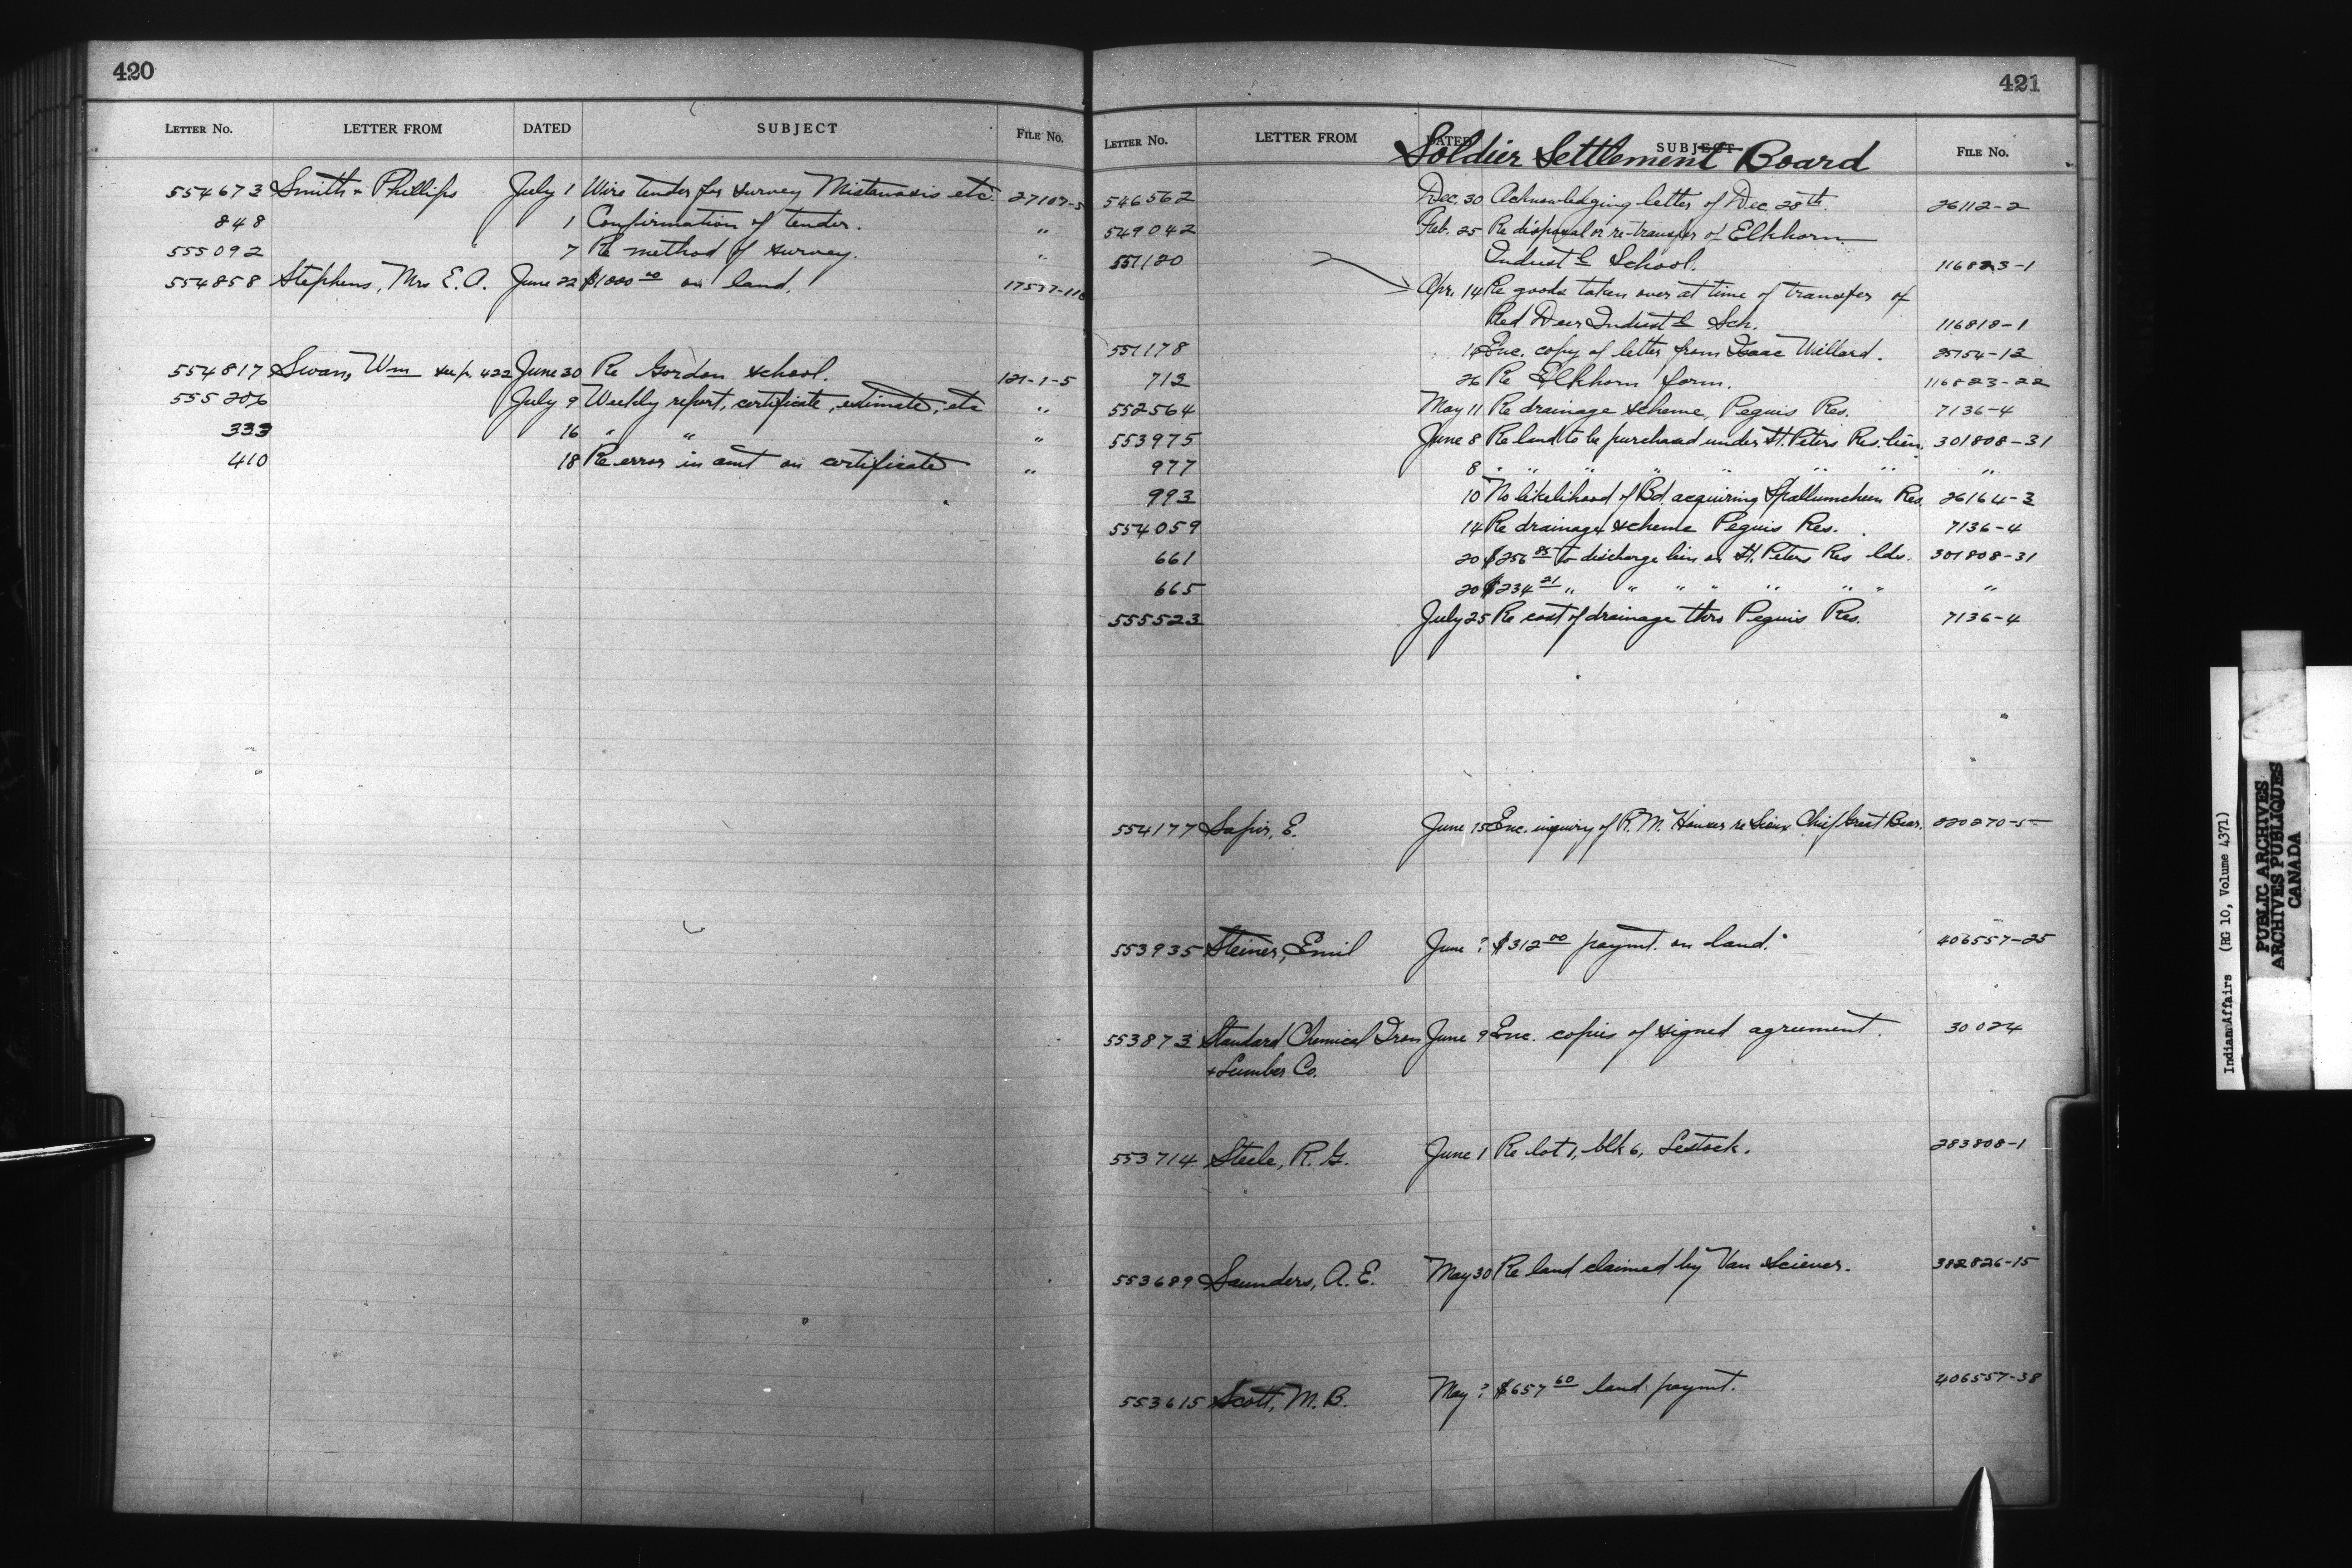 420
LETTER No. LETTER FROM DATED SUBJECT FILE No.
554673 Smith & Phillips July 1 Wire tender for survey Mistawasis etc. 27107-5
848 1 Confirmation of tender. "
555092 7 Re method of survey. "
554858 Stephens, Mrs E. A. June 22 $1000 00 on land.
554817 Swan, Wm see p. 422 June 30 Re Gordon school. 121-1-5
555206 July 9 Weekly report, certificate, estimate, etc "
333 16 " " "
410 18 Re error in amt on certificate "
421
LETTER No. LETTER FROM DATED SUBJECT FILE No.
Soldier Settlement Board
546562 Dec. 30 Acknowledging letter of Dec. 28th. 26112-2
549042 Feb. 25 Re disposal or re-transfer of Elkhorn
551120 Indust'l School. 116823-1
Apr. 14 Re goods taken over at time of transfer of
Red Deer Indust'l Sch. 116818-1
551178 14 Enc. copy of letter from Isaac Willard. 25154-12
712 26 Re Elkhorn farm. 116823-22
552564 May 11 Re drainage scheme, Peguis Res. 7136-4
553975 June 8 Re land to be purchased under St. Peters Res. lien. 301808-31
977 8 " " " " " " " "
993 10 No likelihood of Bd. acquiring Spallumcheen Res. 26164-3
554059 14 Re drainage scheme Peguis Res. 7136-4
661 20 $256 85 to discharge lien on St. Peters Res lds. 301808-31
665 20 $234 21 " " " " " " " "
555523 July 25 Re cost of drainage thro Peguis Res. 7136-4
554177 Sapir, E. June 15 Enc. inquiry of R. M. re Sioux Chief Great Bear. 220270-5
553935 Steiner, Emil June ? $312 00 paymt. on land. 406557-25
553873 Standard Chemical Iron June 9 Enc. copies of signed agreement. 30024
& Lumber Co.
553714 Steele, R. G. June 1 Re lot 1, blk 6, Lestock. 283808-1
553689 Saunders, A. E. May 30 Re land claimed by Van Sciever. 382826-15
553615 Scott, M. B. May ? $657 60 land paymt. 406557-38
Indian Affairs (RG 10, Volume 4371)
PUBLIC ARCHIVES
ARCHIVES PUBLIQUES
CANADA